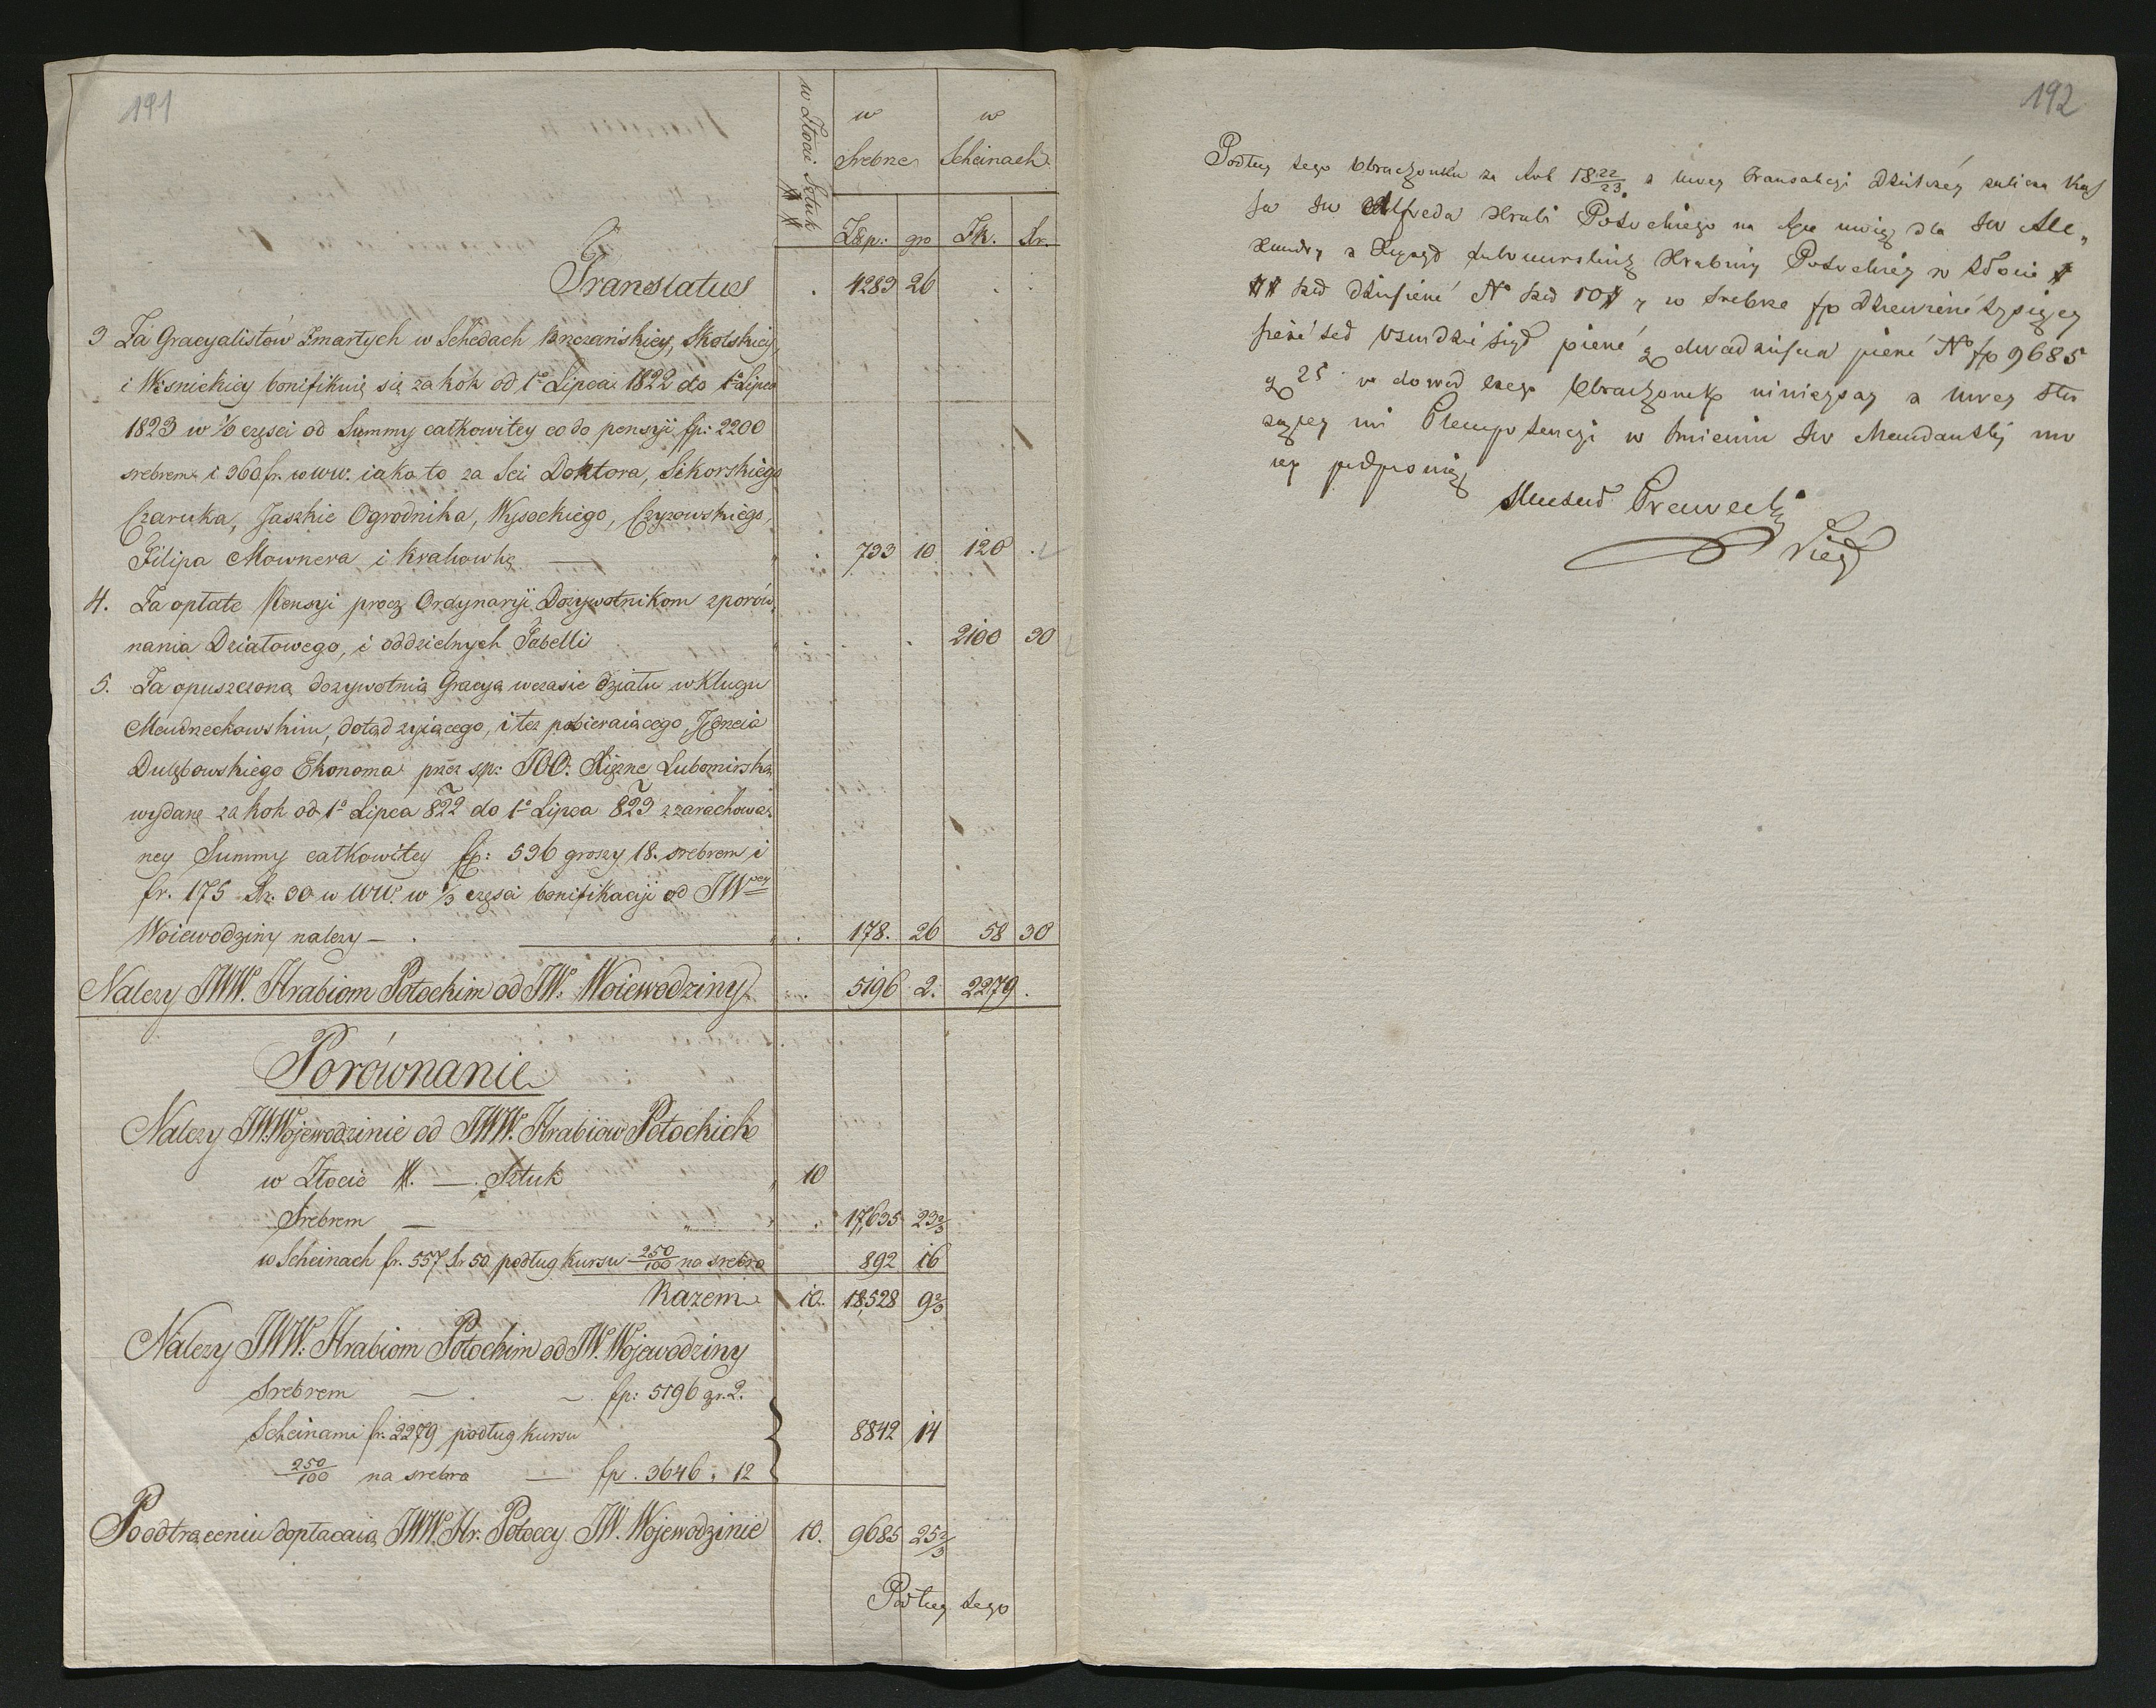 191
w Złocie Sztuk ##
w Srebrze
w Scheinach
Złp: gr Zr. Kr.
Translatus . 4283 26 . .
3 Za Gracyalistów Zmarłych w Schedach Brzezańskiey, Skolskiey,
i Wisnickiey bonifikuię się za Rok od 1o Lipca 1822 do 1o Lipca
1823 w 1/3 części od Summy całkowitey co do pensyi fp: 2200
srebrem i 360 fr. w WW. iako to za Sci Doktora, Sikorskiego
Czaruka, Jaszkie Ogrodnika, Wysockiego, Czyzowskiego,
Filipa Mownera i Krakowkę — . 733 10 120 .
4. Za opłate Pensyi procz Ordynaryi Dozywotnikom zporów„
nania Działowego, i oddzielnych Tabelli . . 2100 30
5. Za opuszczoną dozywotnią Gracyą wczasie działu w Kluczu
Mendrzechowskim, dotąd zyiącego, i tez pobieraiącego, Jędrzeia
Dulębowskiego Ekonoma przez sp: JOO: Xiężne Lubomirską
wydanę za Rok od 1o Lipca 822 do 1o Lipca 823 zzarachowa„
ney Summy całkowitey fp: 536 groszy 18. srebrem i
fr. 175 Kr. 30 w WW. w 1/3 częsci bonifikacyi od JWney
Woiewodziny nalezy — . 178. 26 58 30
Nalezy JWW. Hrabiom Potockim od JW: Woiewodziny . 5196 2. 2279 .
Porównanie
Nalezy JW. Wojewodzinie od JWW. Hrabiów Potockich
w Złocie #. — . Sztuk 10
Srebrem — „ . 17,635 23 2/3
w Scheinach fr. 557 Kr 50 podług Kursu 250/100 na srebro 892 16
Razem 10. 18,528 9 2/3
Nalezy JWW: Hrabiom Potockim od JW. Wojewodziny
Srebrem — . — fp: 5196 gr. 2.
Scheinami fr. 2279 podług kursu 8842 14
250/100 na srebro — fp. 3646 „ 12
Po odtrąceniu dopłacaią JWW. Hr. Potoccy JW. Wojewodzinie 10. 9685 25 2/3
Podług tego
192
Podług tego Obrachonku za Rok 18 22/23 z mocy Transakcyi Działowey
Alfreda Hrabi Potockiego na
z Xiążąt Lubomirskich Hrabiny Potockiey w Złocie #
## No 10# y w Srebrze fp Dziewięć tysięcy
sześćset Osmdziesiąt pięć g dwadzieścia pięć No fp 9685
g 25 w dowód czego Obrachonek ninieyszy z mocy
mi Plenipotencyi w Imieniu
podpisuię